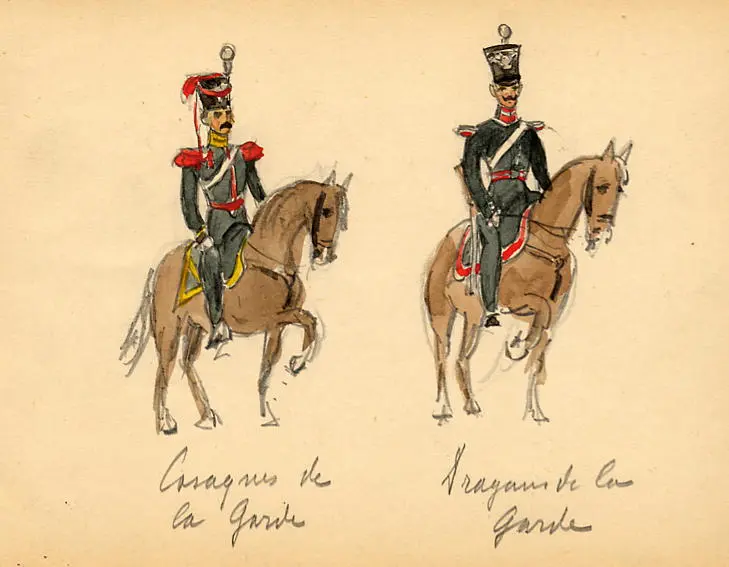 Cosaques de
la Garde
Dragons de la
Garde